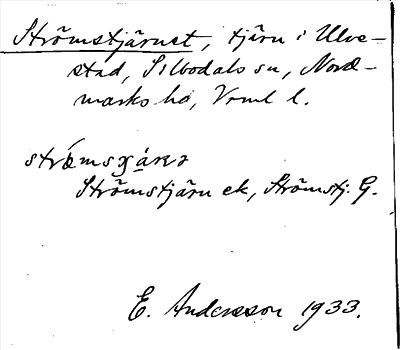 Strömstjärnet, tjärn i Ulve-
stad, Silbodals sn, Nord-
marks hd, Vrml l.
strǿmsȼä̀rnə
Strömstjärn ek, Strömstj. G.
E. Andersson 1933.